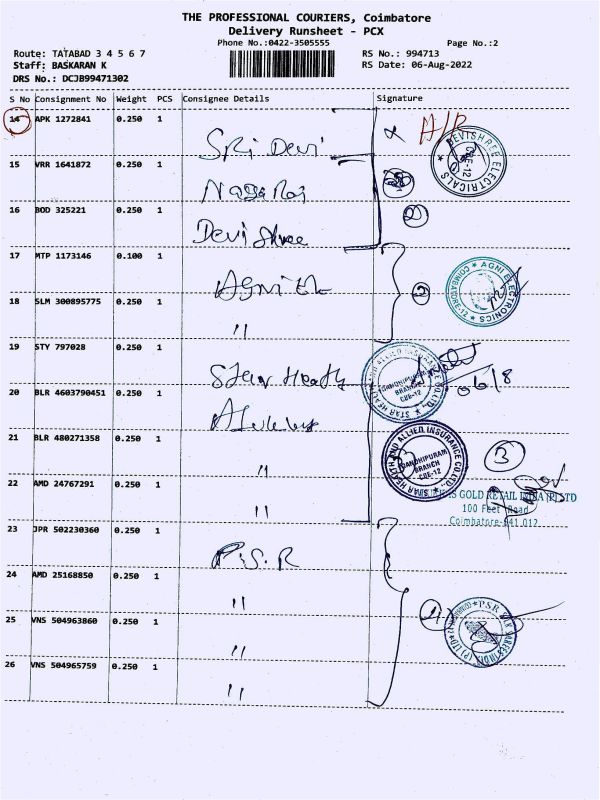 THE PROFESSIONAL COURIERS, Coimbatore
Delivery Runsheet - PCX
Phone No.:0422-3505555
Page No.:2
Route: TATABAD 3 4 5 6 7
RS No.: 994713
Staff: BASKARAN K
RS Date: 06-Aug-2022
DRS No.: DCJB99471302
S No Consignment No Weight PCS Consignee Details Signature
14 APK 1272841 0.250 1
Sri Devi
A/R
DEVISHREE ELECTRICALS CBE-12
15 VRR 1641872 0.250 1
Nagaraj
16 BOD 325221 0.250 1
Devi Shree
2
17 MTP 1173146 0.100 1
Agni EL
2
AGNI ELECTRONICS COIMBATORE-12
18 SLM 300895775 0.250 1
"
19 STY 797028 0.250 1
Star Health
STAR HEALTH AND ALLIED INSURANCE CO.LTD., GANDHIPURAM BRANCH CBE-12
06/8
20 BLR 4603790451 0.250 1
21 BLR 480271358 0.250 1
"
STAR HEALTH AND ALLIED INSURANCE CO.LTD., GANDHIPURAM BRANCH CBE-12
3
22 AMD 24767291 0.250 1
"
GOLD RETAIL INDIA (P) LTD
100 Feet Road
Coimbatore-641 012
23 JPR 502230360 0.250 1
P.S.R
24 AMD 25168850 0.250 1
"
25 VNS 504963860 0.250 1
"
4
PSR
26 VNS 504965759 0.250 1
"